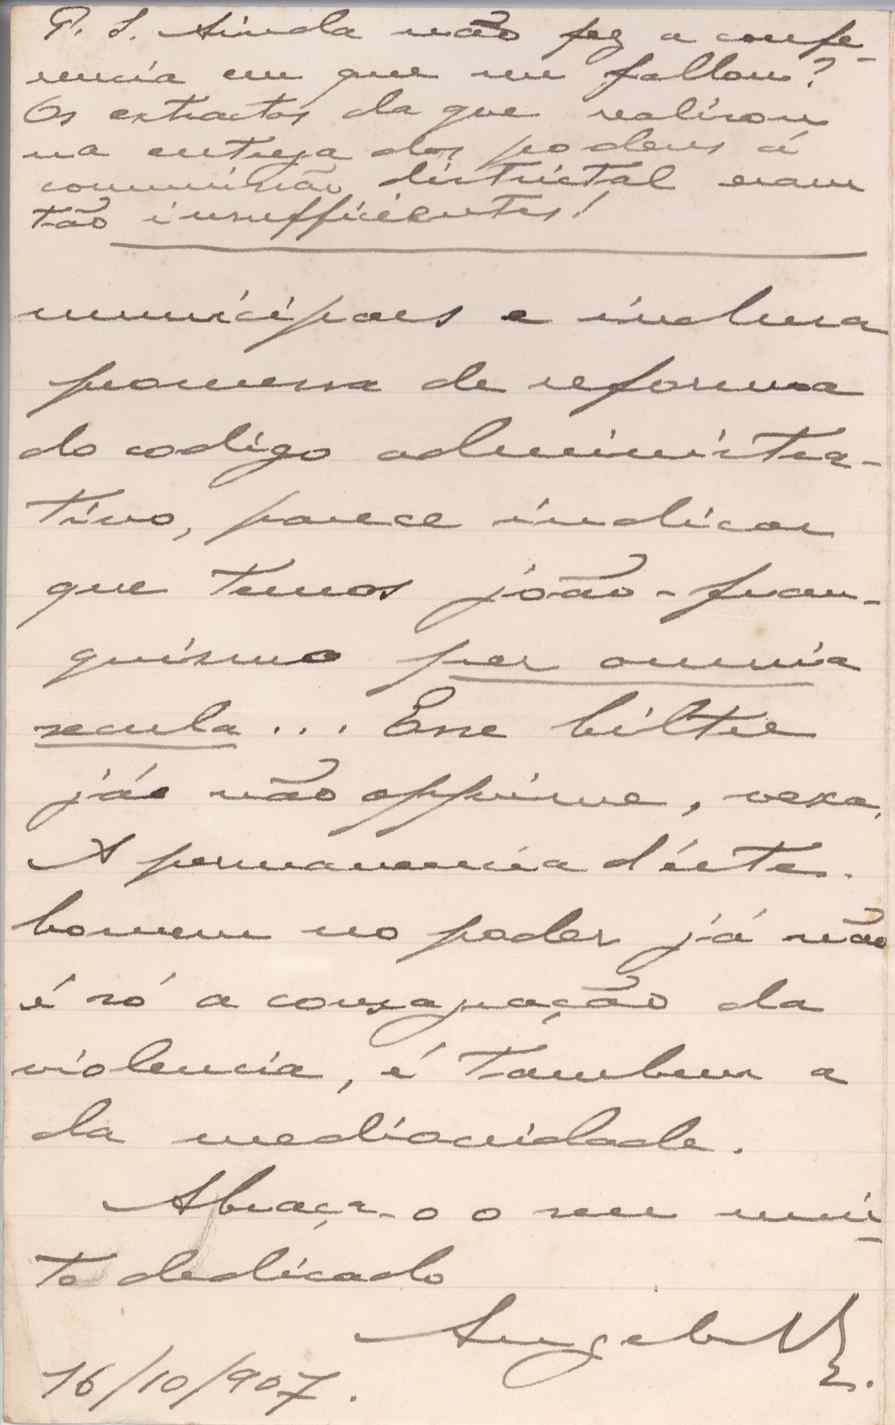 P. S. Ainda não fez a confe-
rencia em que me fallou?
Os extractos da que realisou
na entrega dos poderes á
commissão districtal eram
tão insufficientes!
municipaes e inclusa
promessa de reforma
do codigo administra-
tivo, parece indicar
que temos joão-fran-
quismo per omnia
secula... Esse biltre
já não opprime, vexa.
A permanencia d'este
homem no poder já não
é só a consagração da
violencia, é tambem a
da mediocridade.
Abraça-o o seu mui-
to dedicado
Angelo
16/10/907.